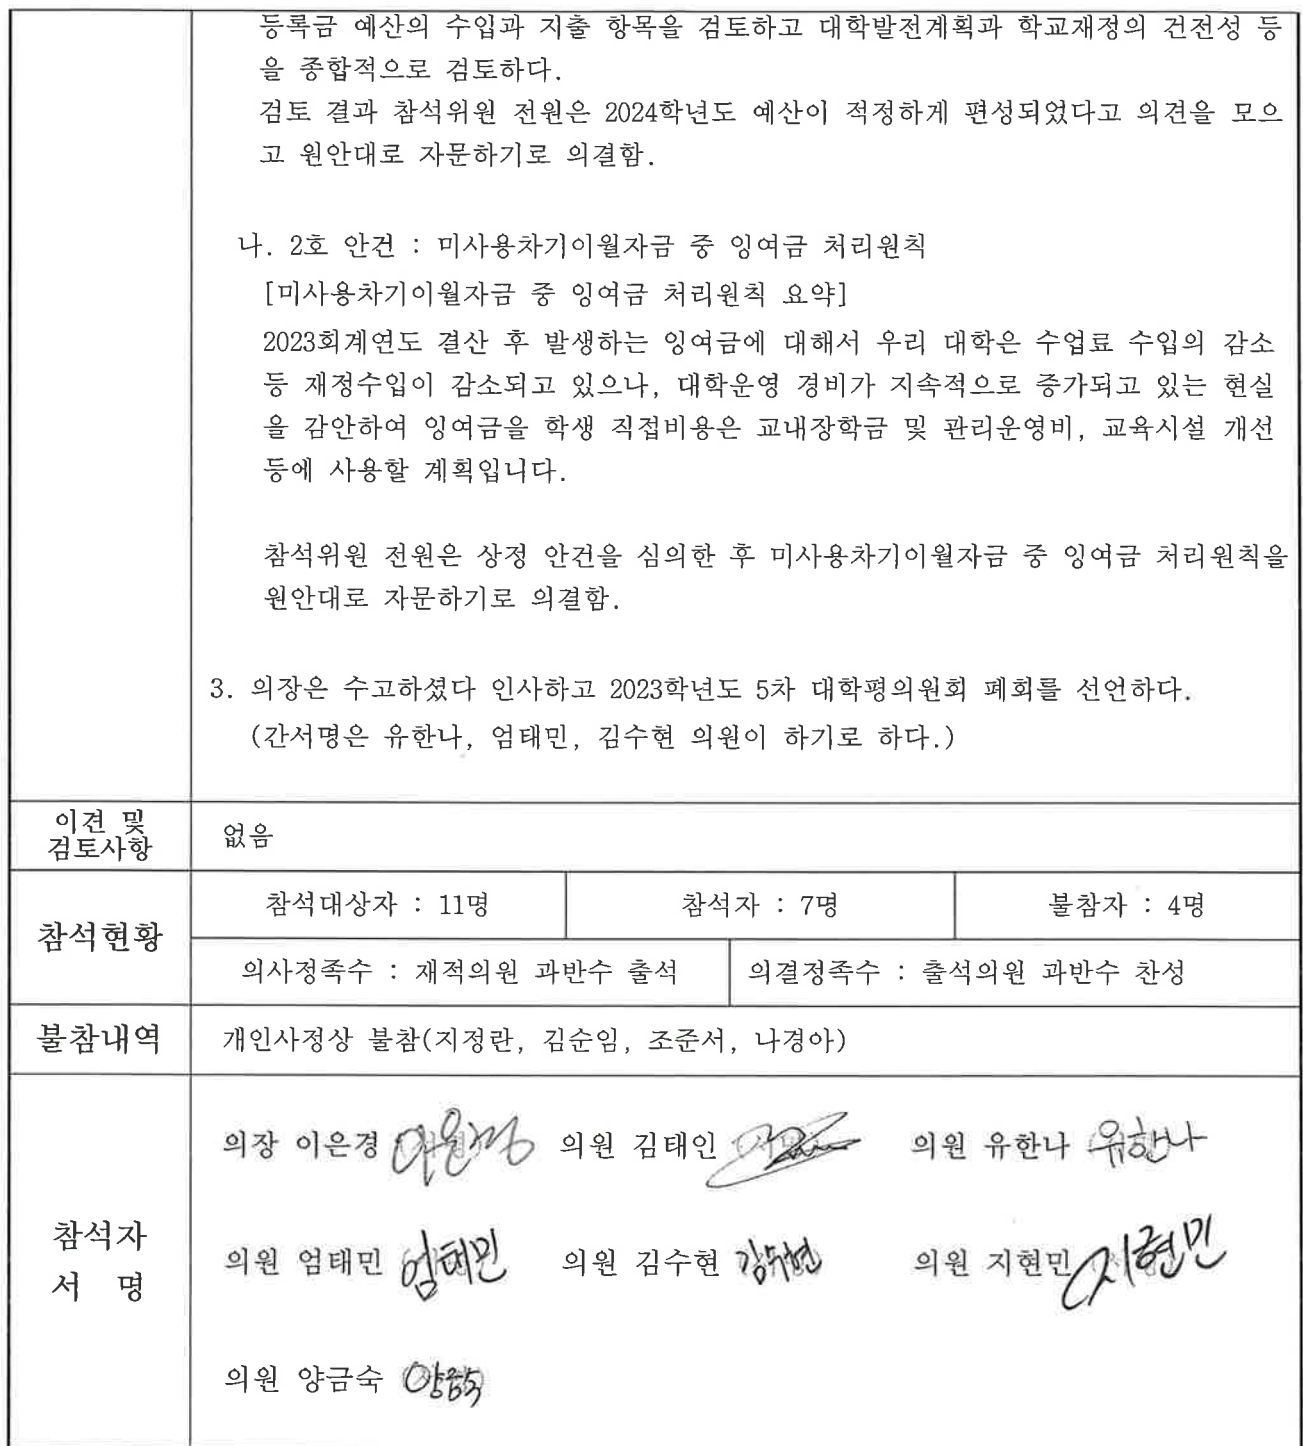 등록금 예산의 수입과 지출 항목을 검토하고 대학발전계획과 학교재정의 건전성 등
을 종합적으로 검토하다.
검토 결과 참석위원 전원은 2024학년도 예산이 적정하게 편성되었다고 의견을 모으
고 원안대로 자문하기로 의결함.
나. 2호 안건 : 미사용차기이월자금 중 잉여금 처리원칙
[미사용차기이월자금 중 잉여금 처리원칙 요약]
2023회계연도 결산 후 발생하는 잉여금에 대해서 우리 대학은 수업료 수입의 감소
등 재정수입이 감소되고 있으나, 대학운영 경비가 지속적으로 증가되고 있는 현실
을 감안하여 잉여금을 학생 직접비용은 교내장학금 및 관리운영비, 교육시설 개선
등에 사용할 계획입니다.
참석위원 전원은 상정 안건을 심의한 후 미사용차기이월자금 중 잉여금 처리원칙을
원안대로 자문하기로 의결함.
3. 의장은 수고하셨다 인사하고 2023학년도 5차 대학평의원회 폐회를 선언하다.
(간서명은 유한나, 엄태민, 김수현 의원이 하기로 하다.)
이견 및
검토사항
없음
참석현황
참석대상자 : 11명 참석자 : 7명 불참자 : 4명
의사정족수 : 재적의원 과반수 출석 의결정족수 : 출석의원 과반수 찬성
불참내역 개인사정상 불참(지정란, 김순임, 조준서, 나경아)
참석자
서 명
의장 이은경 이은경 의원 김태인 의원 유한나 유한나
의원 엄태민 엄태민 의원 김수현 김수현 의원 지현민 지현민
의원 양금숙 양금숙